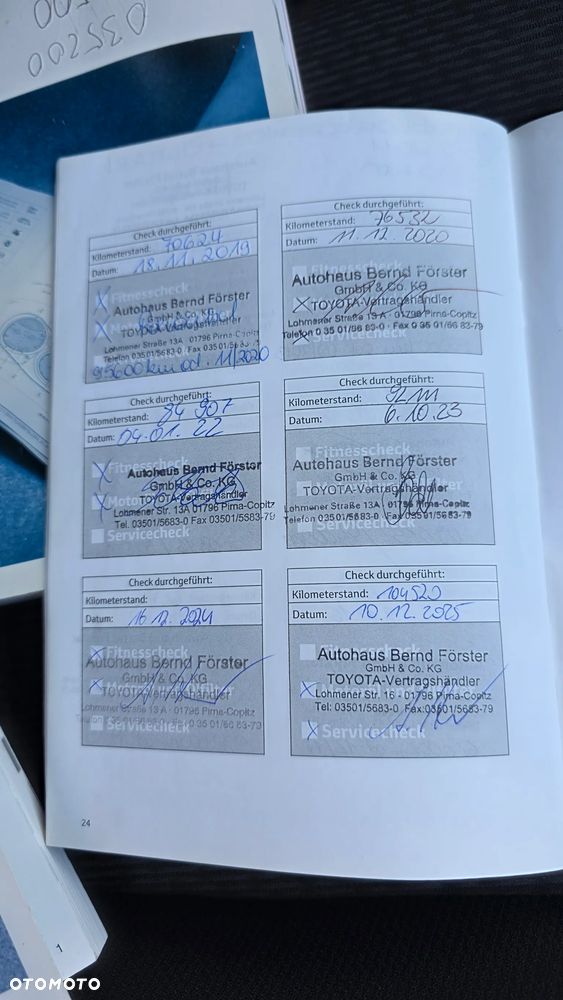 035200
Check durchgeführt:
Kilometerstand: 70624
Datum: 18.11.2019
Fitnesscheck
Autohaus Bernd Förster
GmbH & Co. KG
TOYOTA-Vertragshändler
Lohmener Straße 13A · 01796 Pirna-Copitz
Telefon 03501/5683-0 · Fax 03501/5683-79
95600 km od. 11/2020
Check durchgeführt:
Kilometerstand: 76532
Datum: 11.12.2020
Autohaus Bernd Förster
GmbH & Co. KG
TOYOTA-Vertragshändler
Lohmener Straße 13 A · 01796 Pirna-Copitz
Telefon 0 35 01/56 83-0 · Fax 0 35 01/56 83-79
Check durchgeführt:
Kilometerstand: 84 907
Datum: 04.01.22
Fitnesscheck
Autohaus Bernd Förster
GmbH & Co. KG
TOYOTA-Vertragshändler
Lohmener Str. 13A 01796 Pirna-Copitz
Tel. 03501/5683-0 Fax 03501/5683-79
Servicecheck
Check durchgeführt:
Kilometerstand:
Datum: 6.10.23
Fitnesscheck
Autohaus Bernd Förster
GmbH & Co. KG
TOYOTA-Vertragshändler
Lohmener Straße 13 A · 01796 Pirna-Copitz
Telefon 03501/5683-0 · Fax 03501/5683-79
Servicecheck
Check durchgeführt:
Kilometerstand:
Datum: 16.12.2024
Fitnesscheck
Autohaus Bernd Förster
GmbH & Co. KG
TOYOTA-Vertragshändler
Lohmener Straße 13 A · 01796 Pirna-Copitz
Fax 0 35 01/56 83-79
Servicecheck
Check durchgeführt:
Kilometerstand: 104520
Datum: 10.12.2025
Autohaus Bernd Förster
GmbH & Co. KG
TOYOTA-Vertragshändler
Lohmener Str. 16 · 01796 Pirna-Copitz
Tel: 03501/5683-0 Fax: 03501/5683-79
Servicecheck
24
1
OTOMOTO